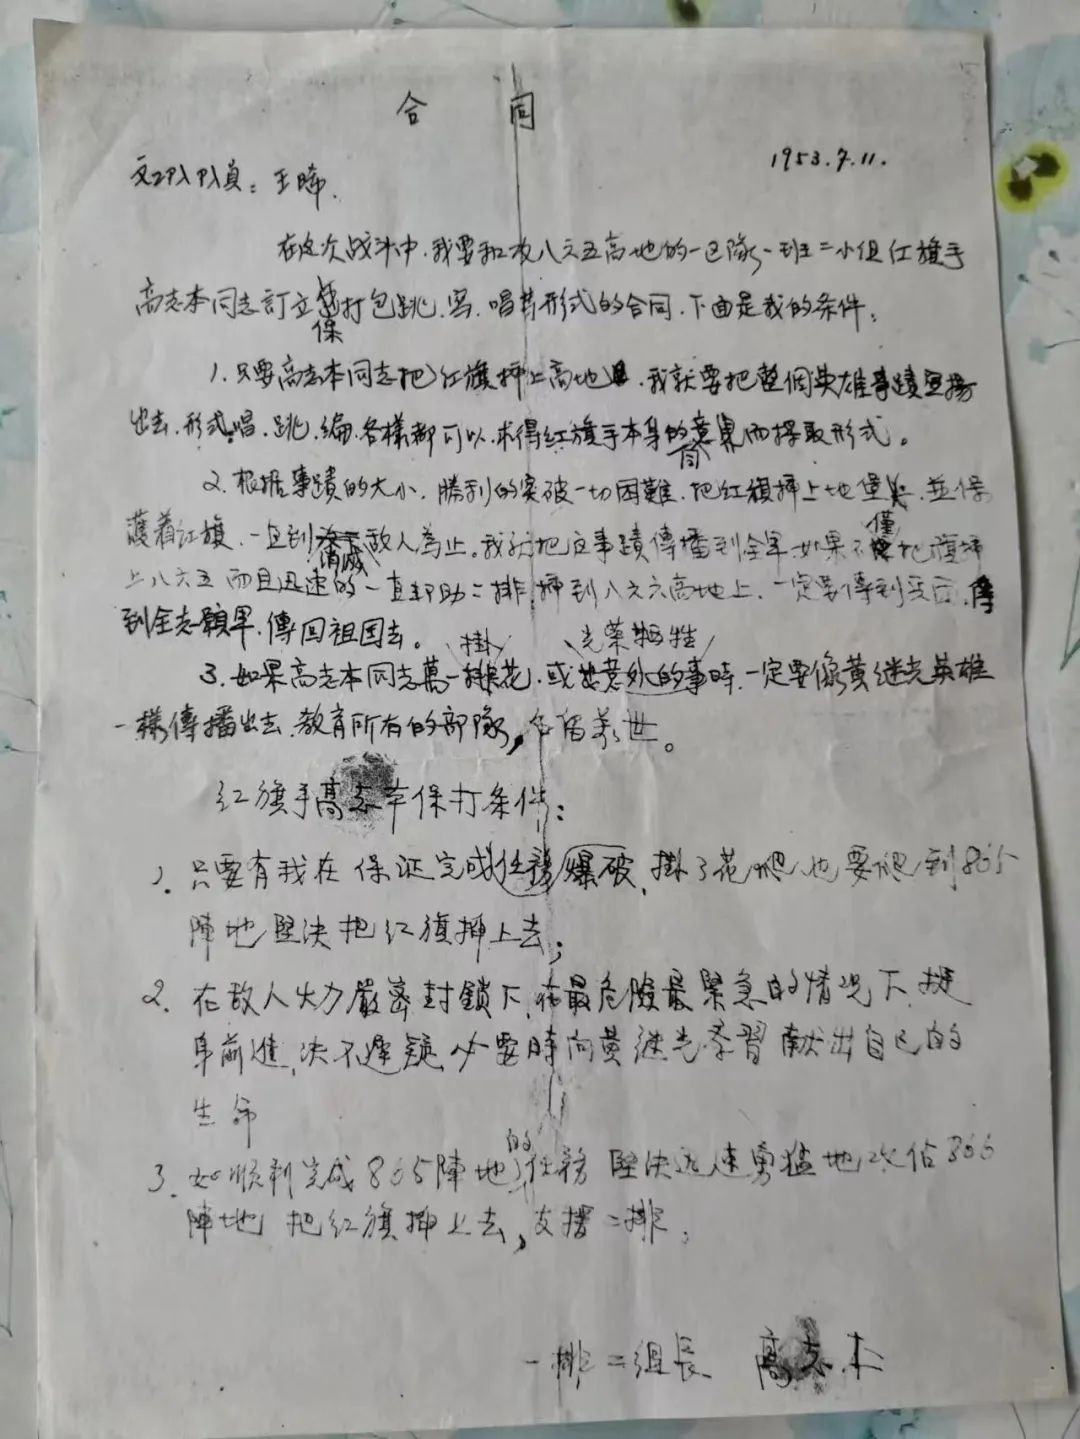 合 同
1953.7.11.
文工队队员：王晞.
在这次战斗中.我要和攻八六五高地的一连队一班二小组红旗手
高志本同志訂立保打包跳.写.唱等形式的合同.下面是我的条件：
1.只要高志本同志把红旗挿上高地.我就要把整個英雄事蹟宣揚
出去.形式唱.跳.編.各樣都可以.求得红旗手本身的同意而採取形式。
2.根据事蹟的大小.勝利的突破一切困難.把红旗挿上地堡.並保
護着红旗.一直到消滅敌人為止.我就把这事蹟傳播到全军.如果不僅把旗挿
上八六五而且迅速的一直帮助二排.挿到八六六高地上.一定要傳到
到全志願军.傳回祖国去。
3.如果高志本同志萬一掛花.或光荣牺牲時.一定要像黄继光英雄
一様傳播出去.教育所有的部隊，名留萬世。
红旗手高志本保打条件：
1.只要有我在保证完成任務爆破.掛了花爬也要爬到865
陣地堅决把红旗挿上去；
2.在敌人火力嚴密封鎖下.在最危險最緊急的情况下.挺
身前進.决不遲疑.必要時向黄继光学習献出自己的
生命
3.如順利完成865陣地的任務堅决迅速勇猛地攻佔866
陣地把红旗挿上去，支援二排.
一排二組長 高志本